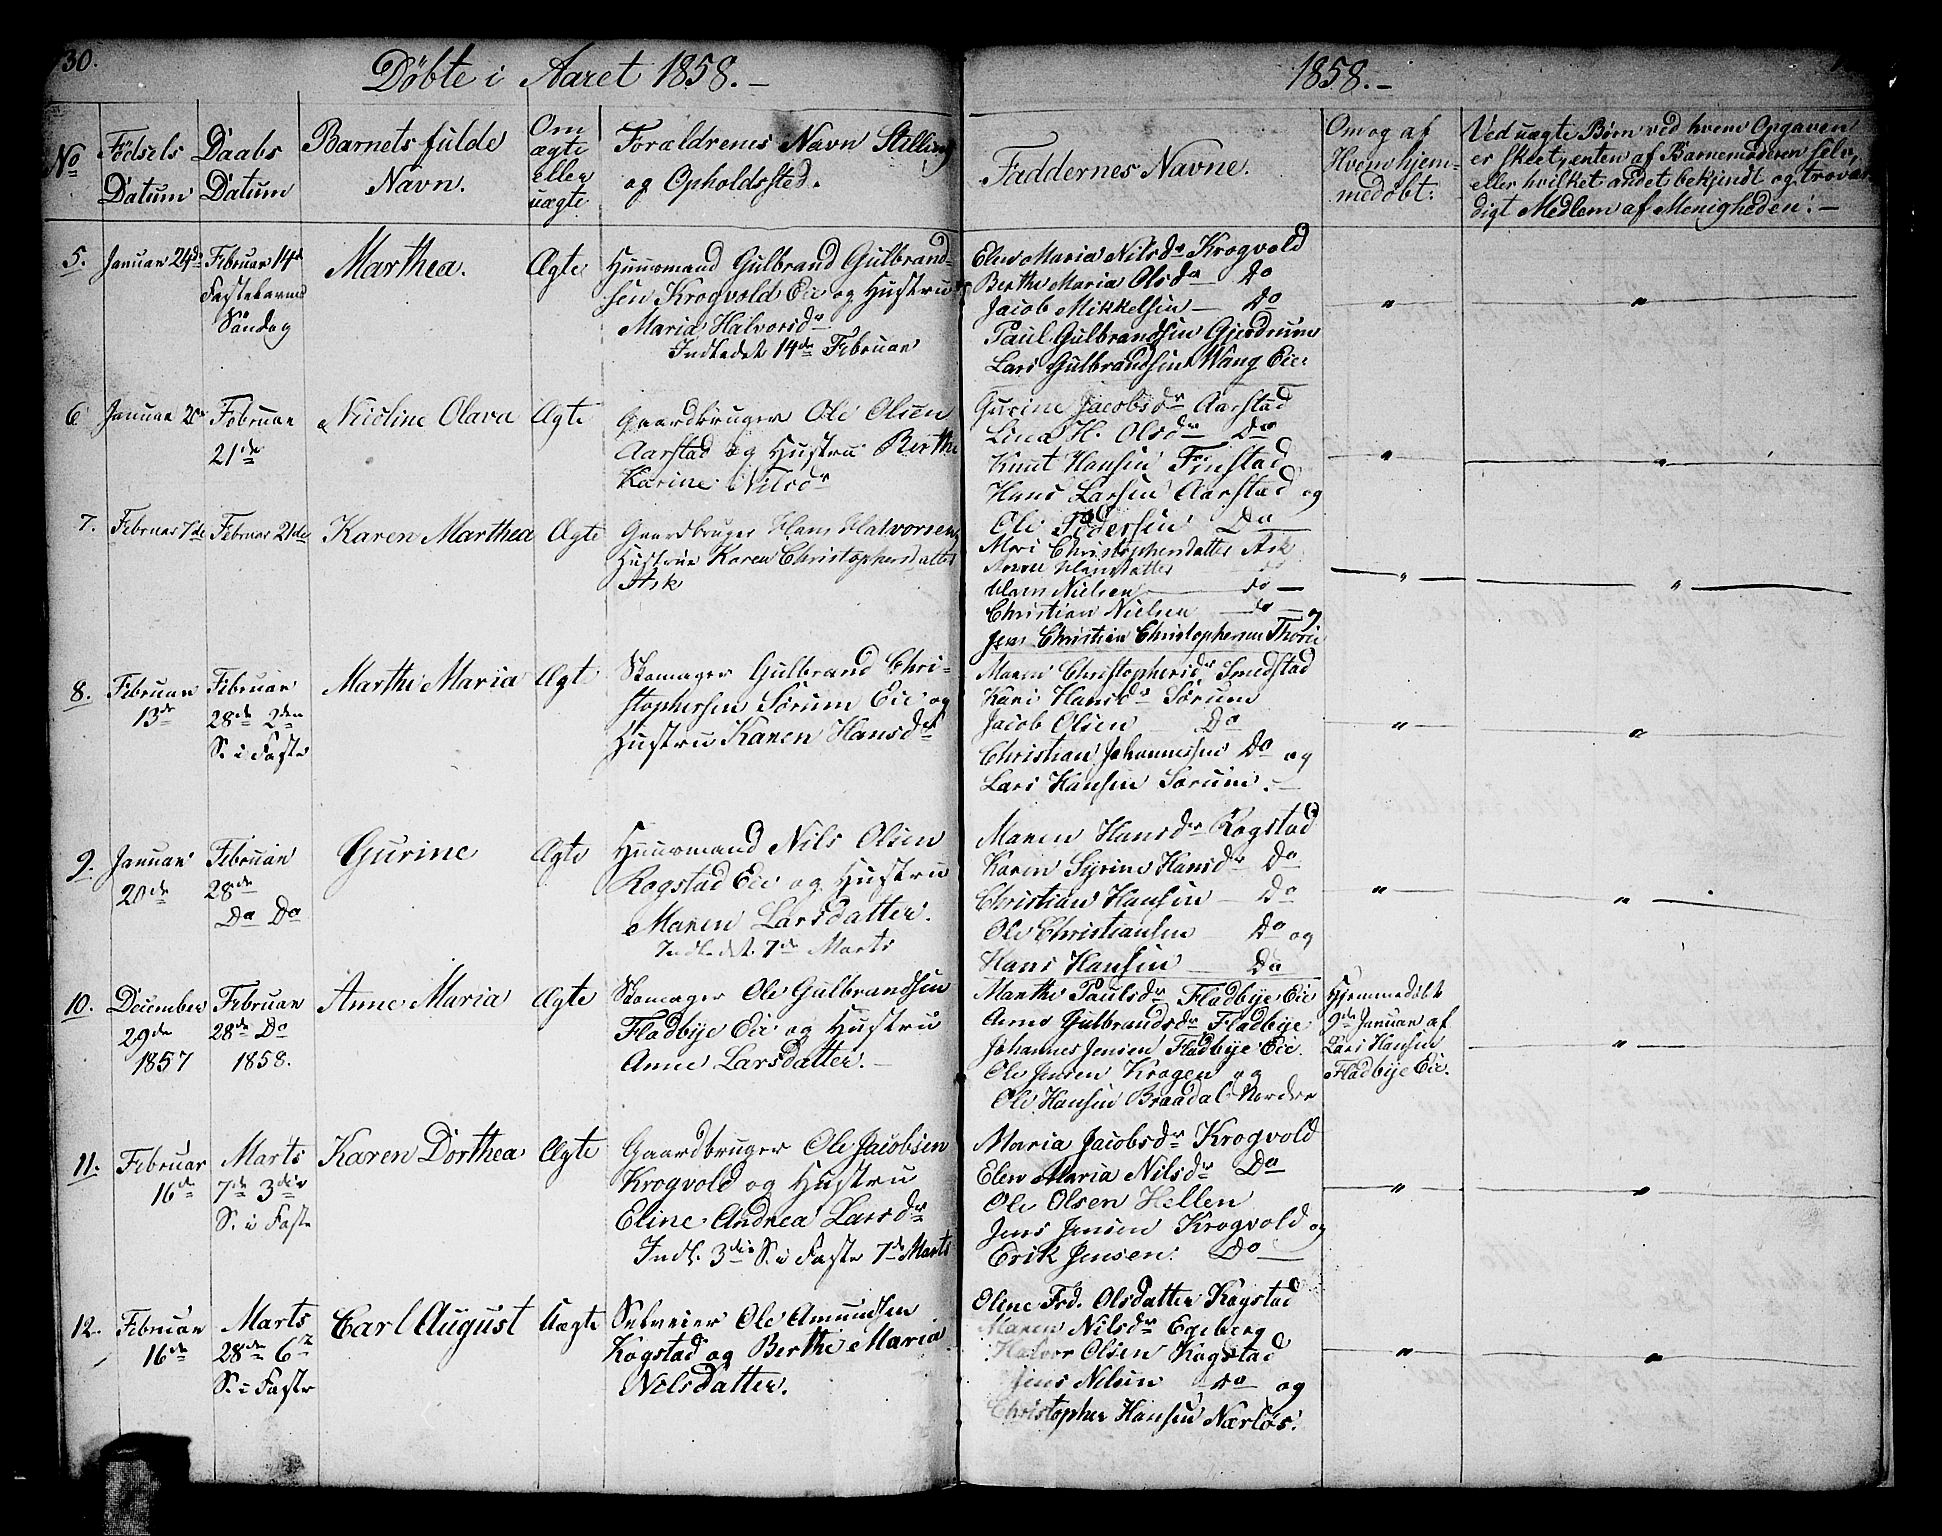 30.
Döbte i Aaret 1858.-
No
Födsels
Datum
Daabs
Datum
Barnets fulde
Navn.
Om
ægte
eller
uægte
Forældrenes Navn Stilling
og Opholdssted.
5.
Januar 24de
Februar 14de
Fastelavns
Söndag
Marthea.
Ægte
Huusmand Gulbrand Gulbrand-
sen Krogvold Eie og Hustru
Maria Halvorsdr
Indledet 14de Februar
6
Januar
Februar
21de
Nicoline Olava
Ægte
Gaardbruger Ole Olsen
Aarstad og Hustru Berthe
Karine Nilsdr
7.
Februar 7de
Februar 21de
Karen Marthea
Ægte
Gaardbruger Hans Halvorsen
Hustrue Karen Christophersdatter
Ask
8.
Februar
13de
Februar
28de 2den
S. i Faste
Marthe Maria
Ægt
Skomager Gulbrand Chri-
stophersen Sörum Eie og
Hustru Karen Hansdr
9.
Januar
20de
Februar
28de
Do Do
Gurine
Ægte
Huusmand Nils Olsen
Rogstad Eie og Hustru
Maren Larsdatter.
Indledet 7de Marts
10.
December
29de
1857
Februar
28de Do
1858.
Anne Maria
Ægte
Skomager Ole Gulbrandsen
Fladbye Eie og Hustru
Anne Larsdatter.-
11.
Februar
16de
Marts
7de 3die
S. i Faste
Karen Dorthea
Ægte
Gaardbruger Ole Jacobsen
Krogvold og Hustru
Eline Andrea Larsdr
Indl. 3die S. i Faste 7de Marts
12.
Februar
16de
Marts
28de 6te
S. i Faste
Carl August
Uægte
Selveier Ole Amundsen
Kogstad og Berthe Maria
Nilsdatter.
1858.-
Faddernes Navne.
Om og af
Hvem hjem-
medöbt:
Ved uægte Börn ved hvem Opgaven
er skeet, enten af Barnemoderen selv,
eller hvilket andet bekjendt og trovær-
digt Medlem af Menigheden.-
Elen Maria Nilsdr Krogvold
Berthe Maria Olsdr Do
Jacob Mikkelsen - Do
Paul Gulbrandsen Gjerdrum
Lars Gulbrandsen Wang Eie.
" "
Gurine Jacobsdr Aarstad
Lina H. Olsdr Do
Knut Hansen Finstad
Hans Larsen Aarstad og
Ole Pedersen Do
" "
Mari Christophersdatter Ask
Anne Hansdatter do
Hans Nielsen do
Christian Nielsen do og
Jens Christian Christophersen
" "
Maren Christophersdr Smedstad
Kari Hansdr Sörum
Jacob Olsen Do
Christian Johannesen Do og
Lars Hansen Sorum.-
" "
Maren Hansdr Rogstad
Karen Syrine Hansdr Do
Christian Hansen - Do
Ole Christiansen - Do og
Hans Hansen - Do
" "
Marthe Paulsdr Fladbye Eie
Anne Gulbrandsdr Fladbye
Johannes Jensen Fladbye Eie.
Ole Jensen Krogen og
Ole Hansen Braadal Nordre
Hjemmedöbt
9de Januar af
Lars Hansen
Fladbye Eie.
"
Maria Jacobsdr Krogvold
Elen Maria Nilsdr Do
Ole Olsen Hellen
Jens Jensen Krogvold og
Erik Jensen. Do
" "
Oline Frd. Olsdatter Kogstad
Maren Nilsdr Egeberg
Halvor Olsen Kogstad
Jens Nelsen do og
Christopher Hansen Nærlös.
" "